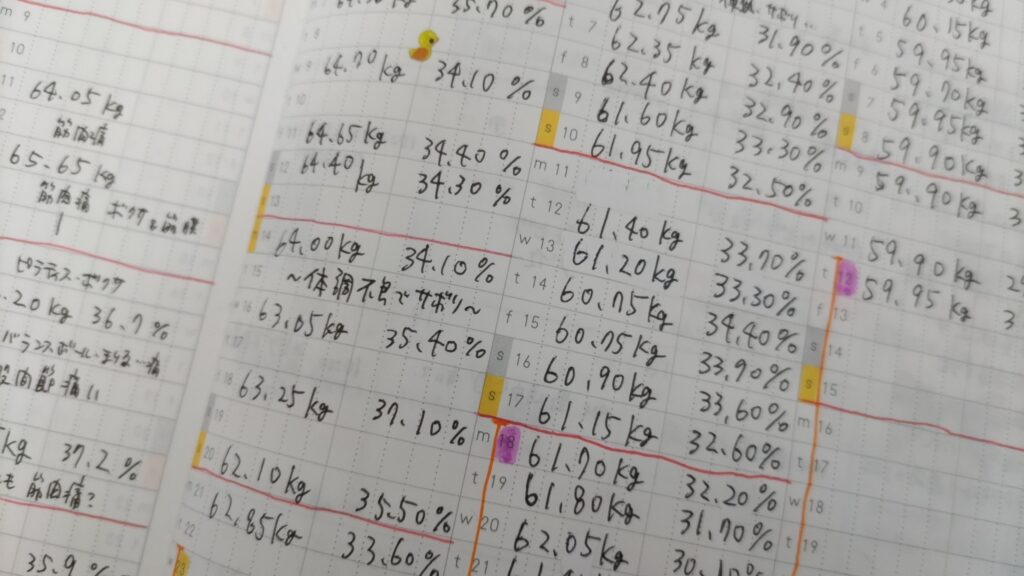 m 9
10
11 64.05kg
筋肉痛
65.65kg
筋肉痛
ピラティス・ボクサ
.20kg 36.7%
バランスボール
筋肉痛
kg 37.2%
筋肉痛?
35.9%
35.70%
8
w 9 64.70kg 34.10%
10
11 64.65kg 34.40%
12 64.40kg 34.30%
13
14 64.00kg 34.10%
t 15 〜体調不良でサボリ〜
w 16 63.05kg 35.40%
17
18 63.25kg 37.10%
19
20 62.10kg 35.50%
m 21 62.85kg 33.60%
t 22
t 7 62.75kg 31.90%
f 8 62.35kg 32.40%
s 9 62.40kg 32.90%
s 10 61.60kg 33.30%
m 11 61.95kg 32.50%
t 12
w 13 61.40kg 33.70%
t 14 61.20kg 33.30%
f 15 60.75kg 34.40%
s 16 60.75kg 33.90%
s 17 60.90kg 33.60%
m 18 61.15kg 32.60%
t 19 61.70kg 32.20%
w 20 61.80kg 31.70%
t 21 62.05kg
60.15kg
t 5 59.95kg
f 6 59.70kg
s 7 59.95kg
s 8 59.90kg
m 9 59.90kg
t 10
w 11 59.90kg
t 12 59.95kg
f 13
s 14
s 15
m 16
t 17
w 18
t 19